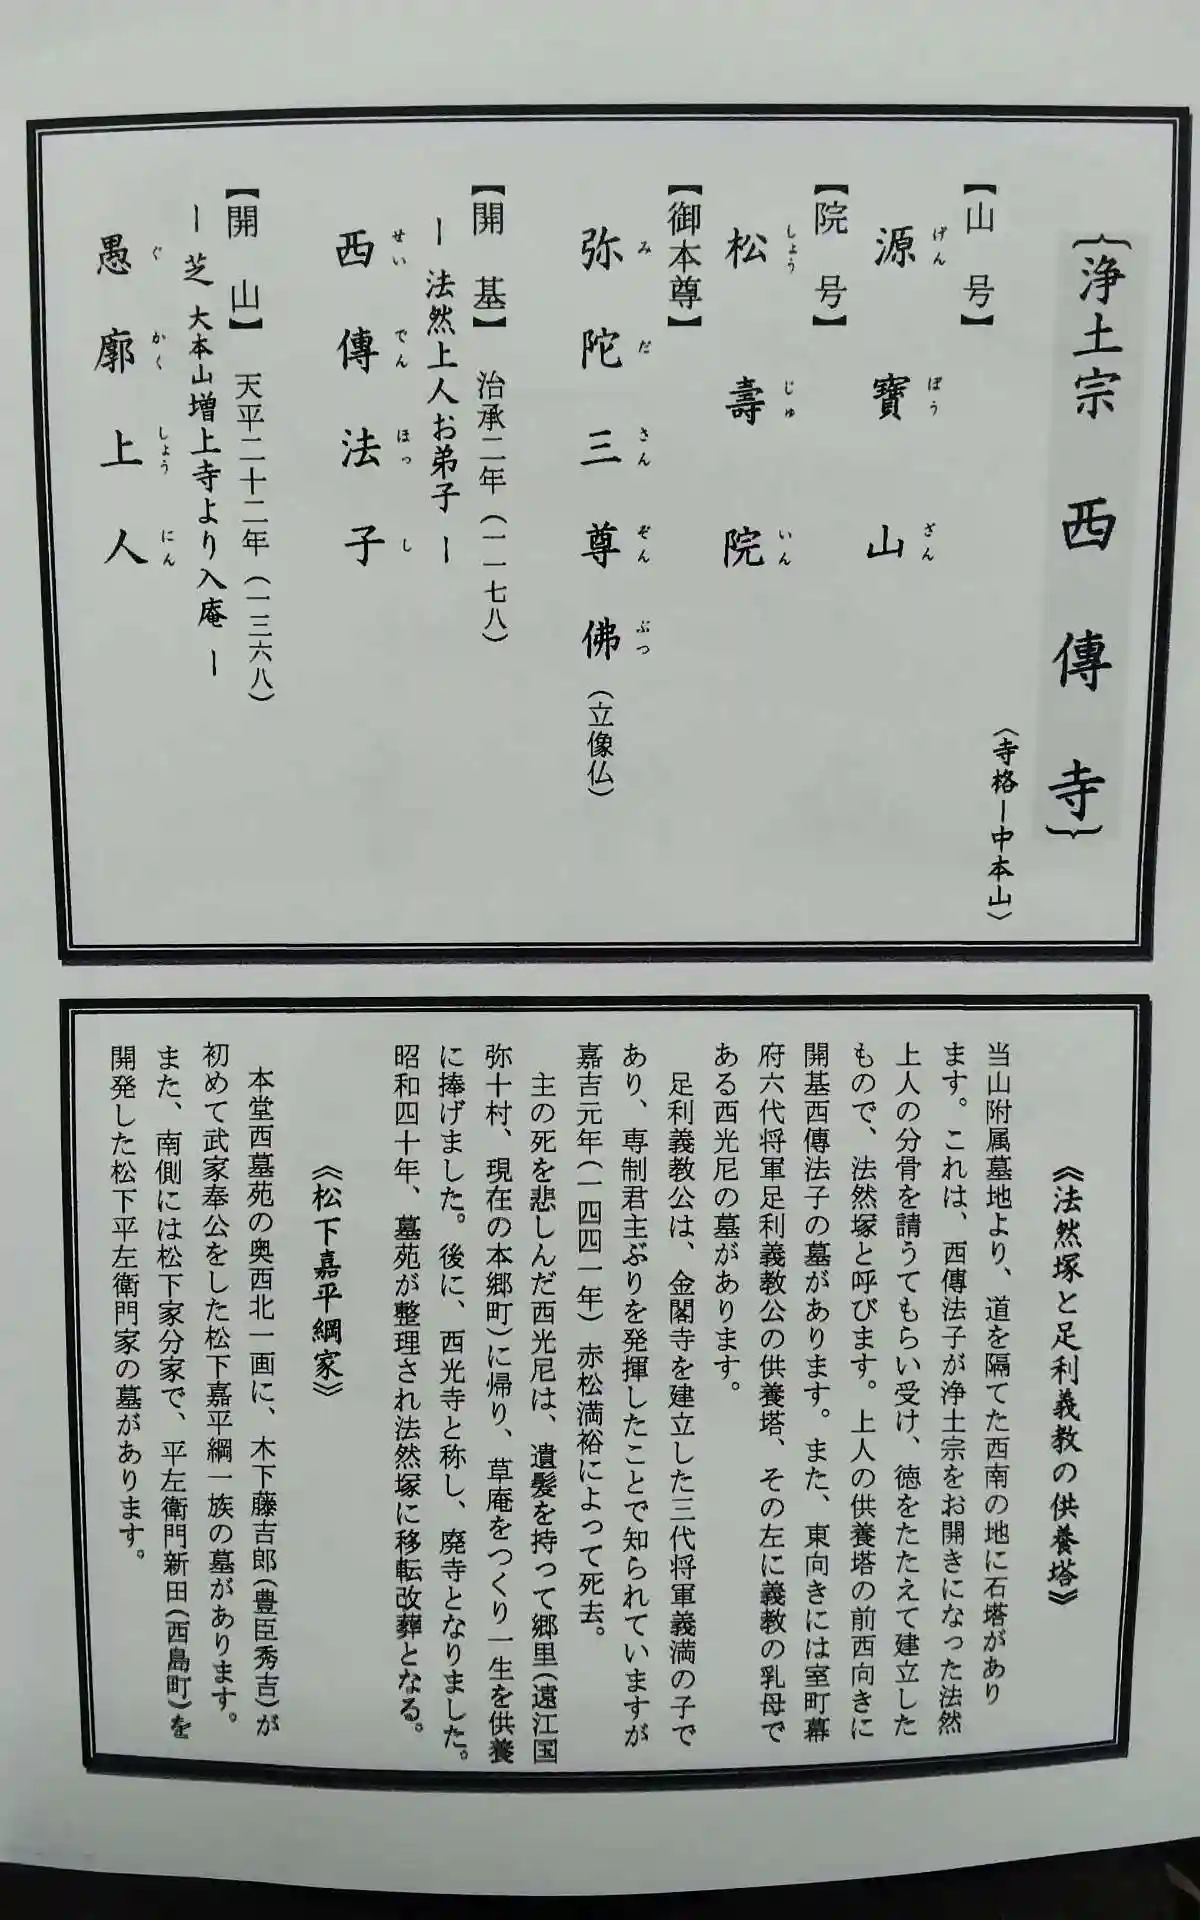 {浄土宗 西傳寺}
〈寺格ー中本山〉
【山号】
源寶山
げん ぽう ざん
【院号】
松壽院
しょう じゅ いん
【御本尊】
弥陀三尊佛(立像仏)
み だ さん ぞん ぶつ
【開基】 治承二年(一一七八)
ー法然上人お弟子ー
西傳法子
せい でん ほっ し
【開山】 天平二十二年(一三六八)
ー芝 大本山増上寺より入庵ー
愚廓上人
ぐ かく しょう にん
《法然塚と足利義教の供養塔》
当山附属墓地より、道を隔てた西南の地に石塔があり
ます。これは、西傳法子が浄土宗をお開きになった法然
上人の分骨を請うてもらい受け、徳をたたえて建立した
もので、法然塚と呼びます。上人の供養塔の前西向きに
開基西傳法子の墓があります。また、東向きには室町幕
府六代将軍足利義教公の供養塔、その左に義教の乳母で
ある西光尼の墓があります。
足利義教公は、金閣寺を建立した三代将軍義満の子で
あり、専制君主ぶりを発揮したことで知られていますが
嘉吉元年(一四四一年)赤松満裕によって死去。
主の死を悲しんだ西光尼は、遺髪を持って郷里(遠江国
弥十村、現在の本郷町)に帰り、草庵をつくり一生を供養
に捧げました。後に、西光寺と称し、廃寺となりました。
昭和四十年、墓苑が整理され法然塚に移転改葬となる。
《松下嘉平綱家》
本堂西墓苑の奥西北一画に、木下藤吉郎(豊臣秀吉)が
初めて武家奉公をした松下嘉平綱一族の墓があります。
また、南側には松下家分家で、平左衛門新田(西島町)を
開発した松下平左衛門家の墓があります。